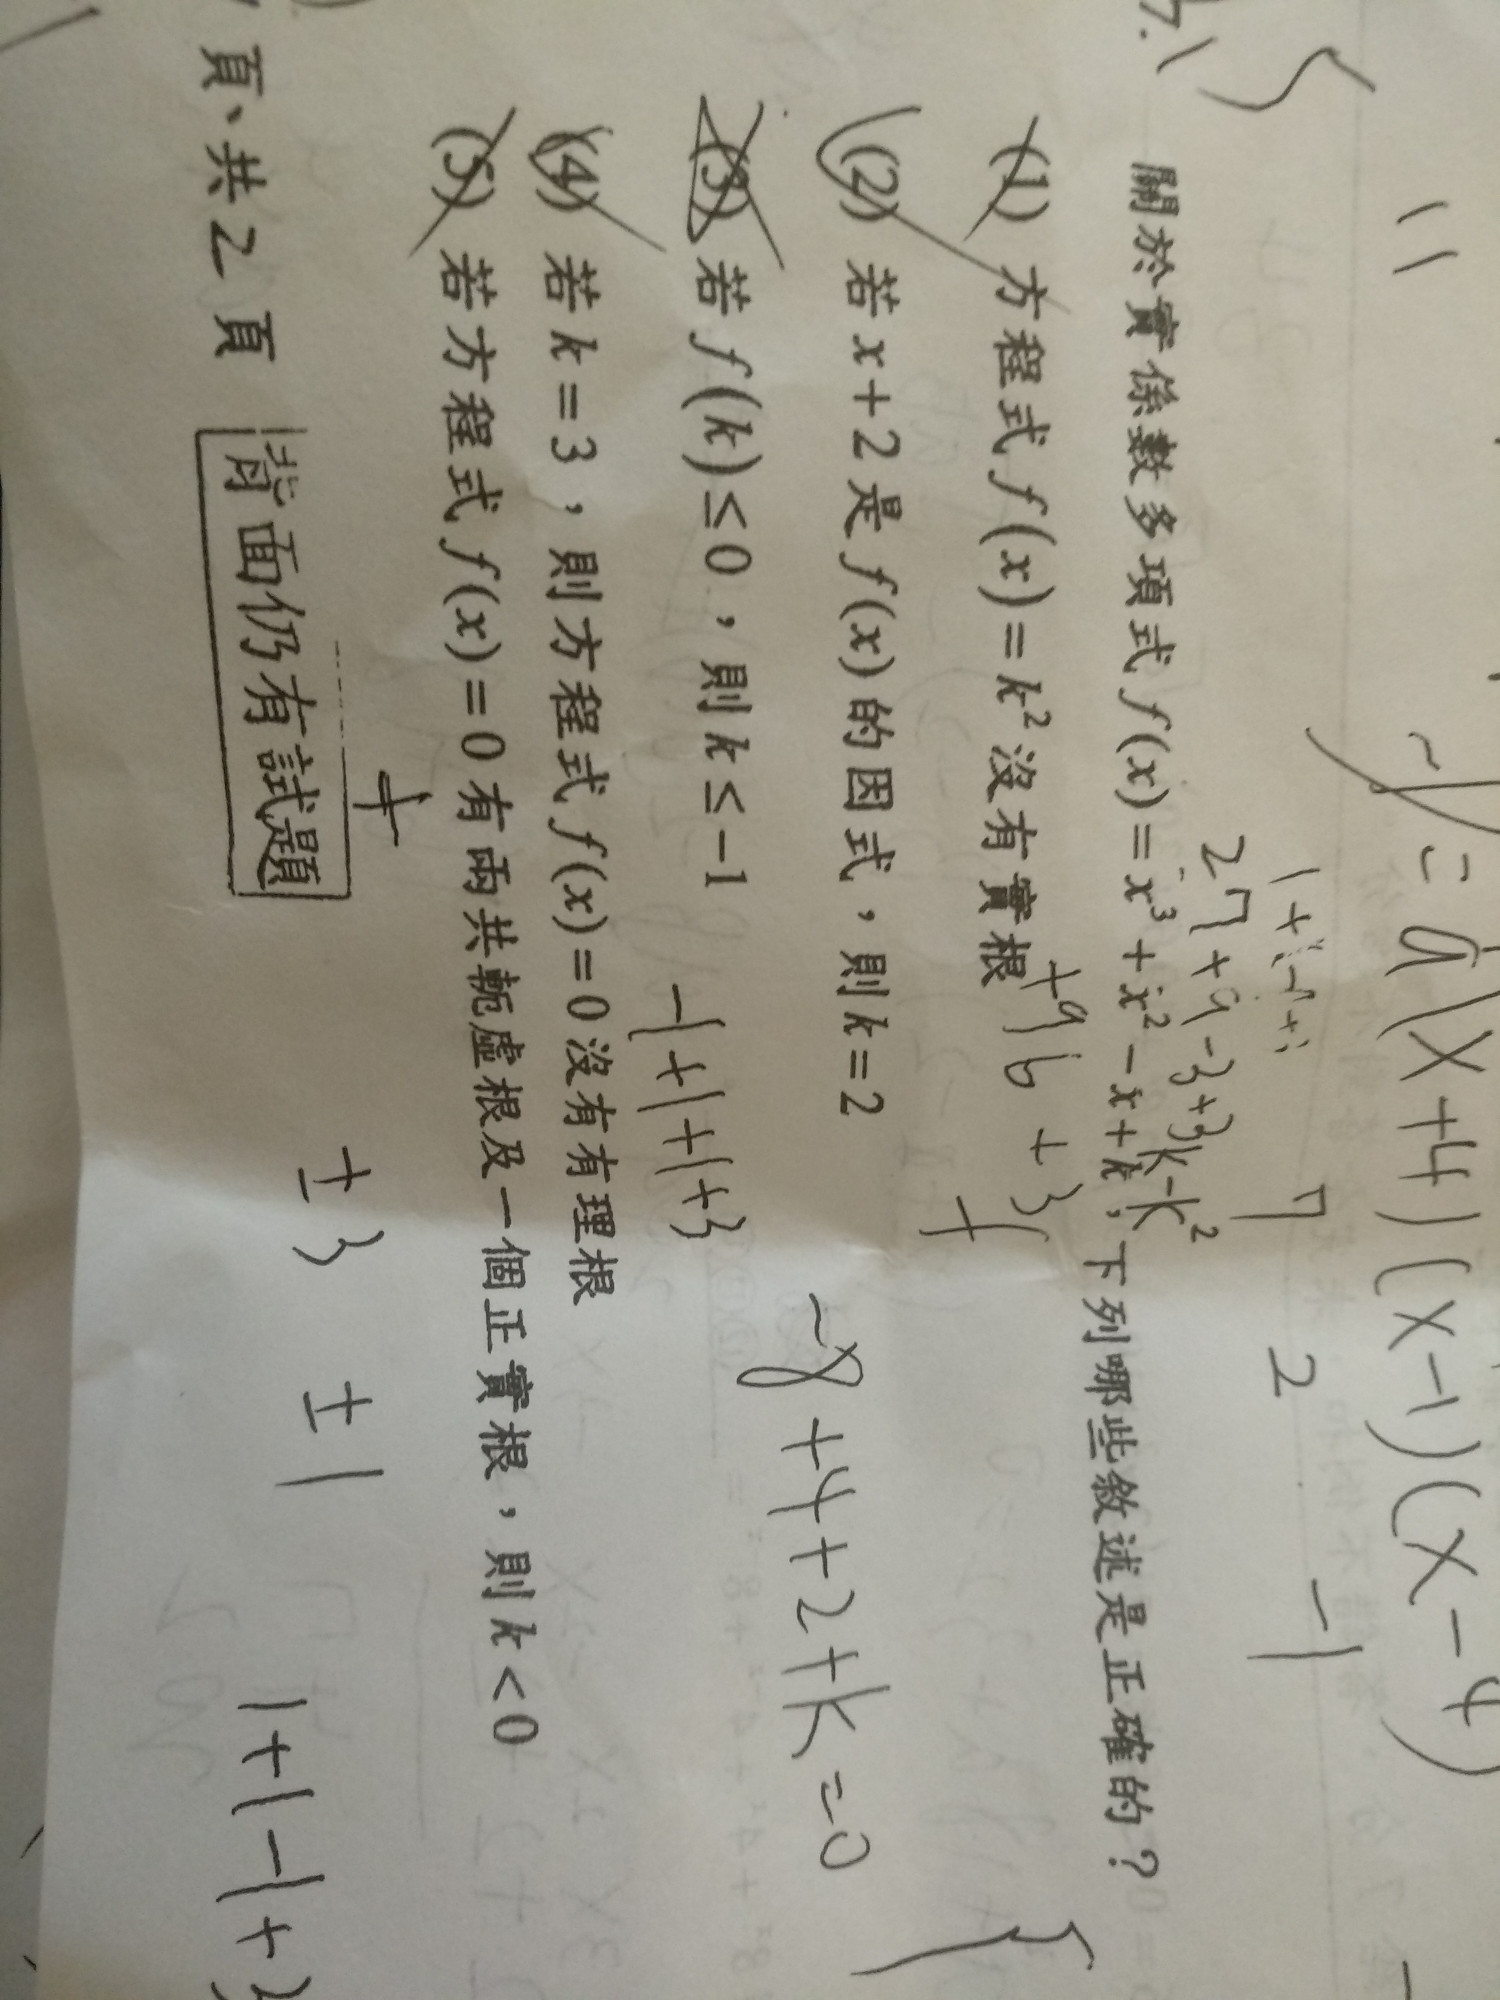 y = a(x+4)(x-1)(x-4)
7 2 -1
27+9-3+3k-k²
7.
關於實係數多項式 f(x)=x³+x²-x+k，下列哪些敘述是正確的？
+9 6 + 3
(1) 方程式 f(x)=k² 沒有實根
(2) 若 x+2 是 f(x) 的因式，則 k=2
-8+4+2+k=0
(3) 若 f(k)≤0，則 k≤-1
-1+1+1+3
(4) 若 k=3，則方程式 f(x)=0 沒有有理根
(5) 若方程式 f(x)=0 有兩共軛虛根及一個正實根，則 k<0
±3 ±1
1+1-1+3
頁、共 2 頁
背面仍有試題